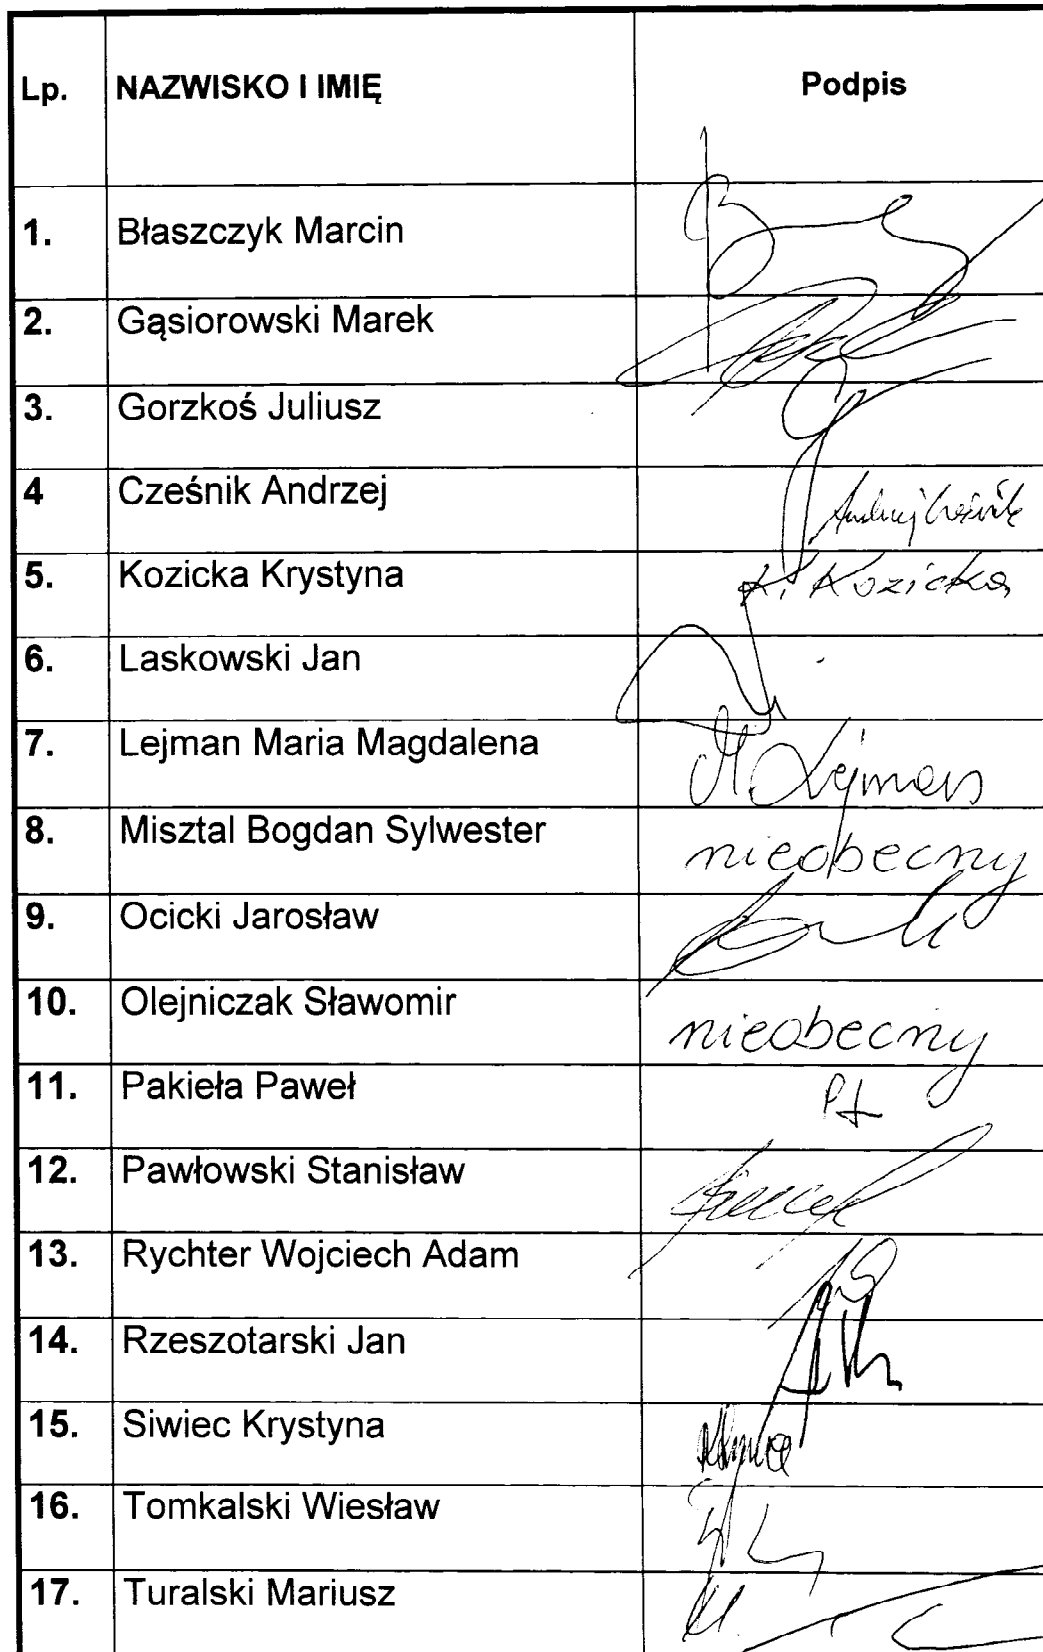 Lp. NAZWISKO I IMIĘ Podpis
1. Błaszczyk Marcin
2. Gąsiorowski Marek
3. Gorzkoś Juliusz
4 Cześnik Andrzej Andrzej Cześnik
5. Kozicka Krystyna K. Kozicka
6. Laskowski Jan
7. Lejman Maria Magdalena M. Lejman
8. Misztal Bogdan Sylwester nieobecny
9. Ocicki Jarosław
10. Olejniczak Sławomir nieobecny
11. Pakieła Paweł
12. Pawłowski Stanisław
13. Rychter Wojciech Adam
14. Rzeszotarski Jan
15. Siwiec Krystyna
16. Tomkalski Wiesław
17. Turalski Mariusz